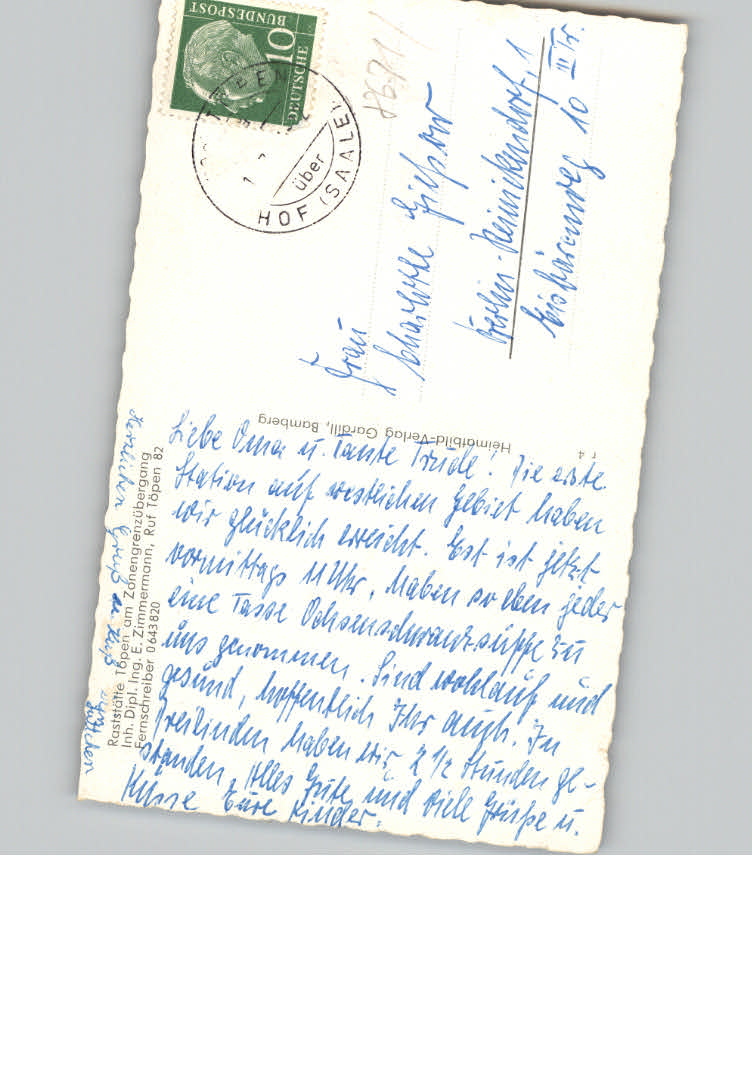 Liebe Oma u. Tante Trude! Die erste
Station auf westlichen Gebiet haben
wir glücklich erreicht. Est ist jetzt
vormittags 11 Uhr, haben so eben jeder
eine Tasse Ochsenschwanzsuppe zu
uns genommen. Sind wohlauf und
gesund, hoffentlich Ihr auch. In
Dreilinden haben wir 2 1/2 Stunden ge-
standen. Alles Gute und viele Grüße u.
Küsse Eure Kinder.
Herzlichen Gruß u. Kuß
Raststätte Töpen am Zonengrenzübergang
Inh. Dipl. Ing. E. Zimmermann, Ruf Töpen 82
Fernschreiber 0643820
Heimatbild-Verlag Gardill, Bamberg
r 4
DEUTSCHE
BUNDESPOST
10
TÖPEN
über
HOF (SAALE)
8671/
Frau
Charlotte
Berlin-Reinickendorf, 1
Eisbärenweg 10 III Tr.